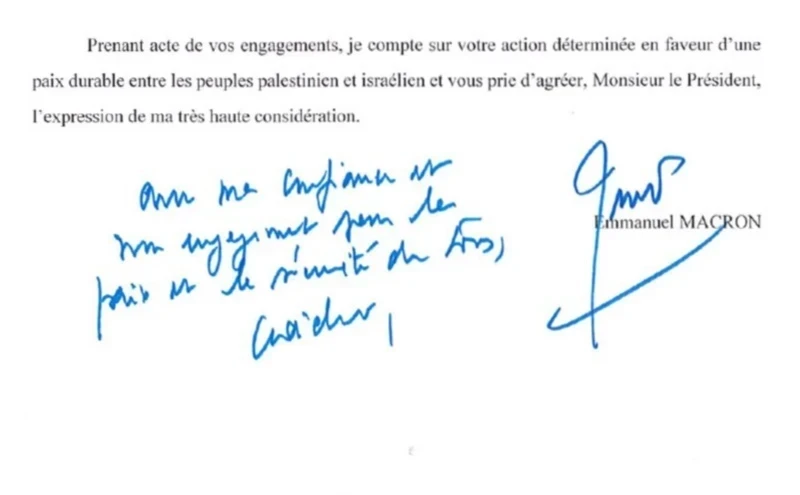 Prenant acte de vos engagements, je compte sur votre action déterminée en faveur d’une
paix durable entre les peuples palestinien et israélien et vous prie d’agréer, Monsieur le Président,
l’expression de ma très haute considération.
avec ma confiance et
mon engagement pour la
paix et la sécurité de tous,
Emmanuel MACRON